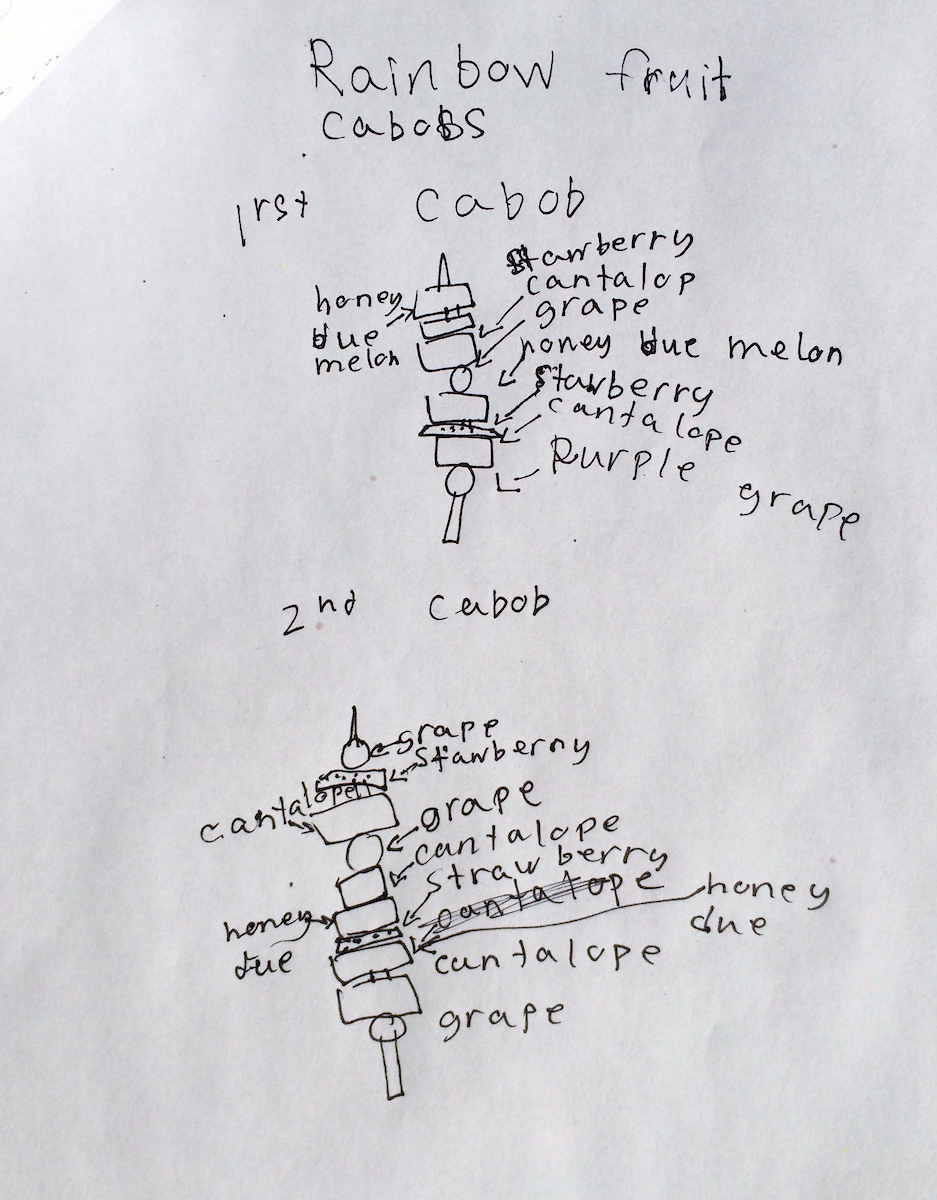 Rainbow fruit
cabobs
1rst cabob
stawberry
cantalop
honey due melon
grape
honey due melon
stawberry
cantalope
Purple grape
2nd cabob
grape
stawberry
cantalope
grape
cantalope
straw berry
cantalope
honey due
honey due
cantalope
grape